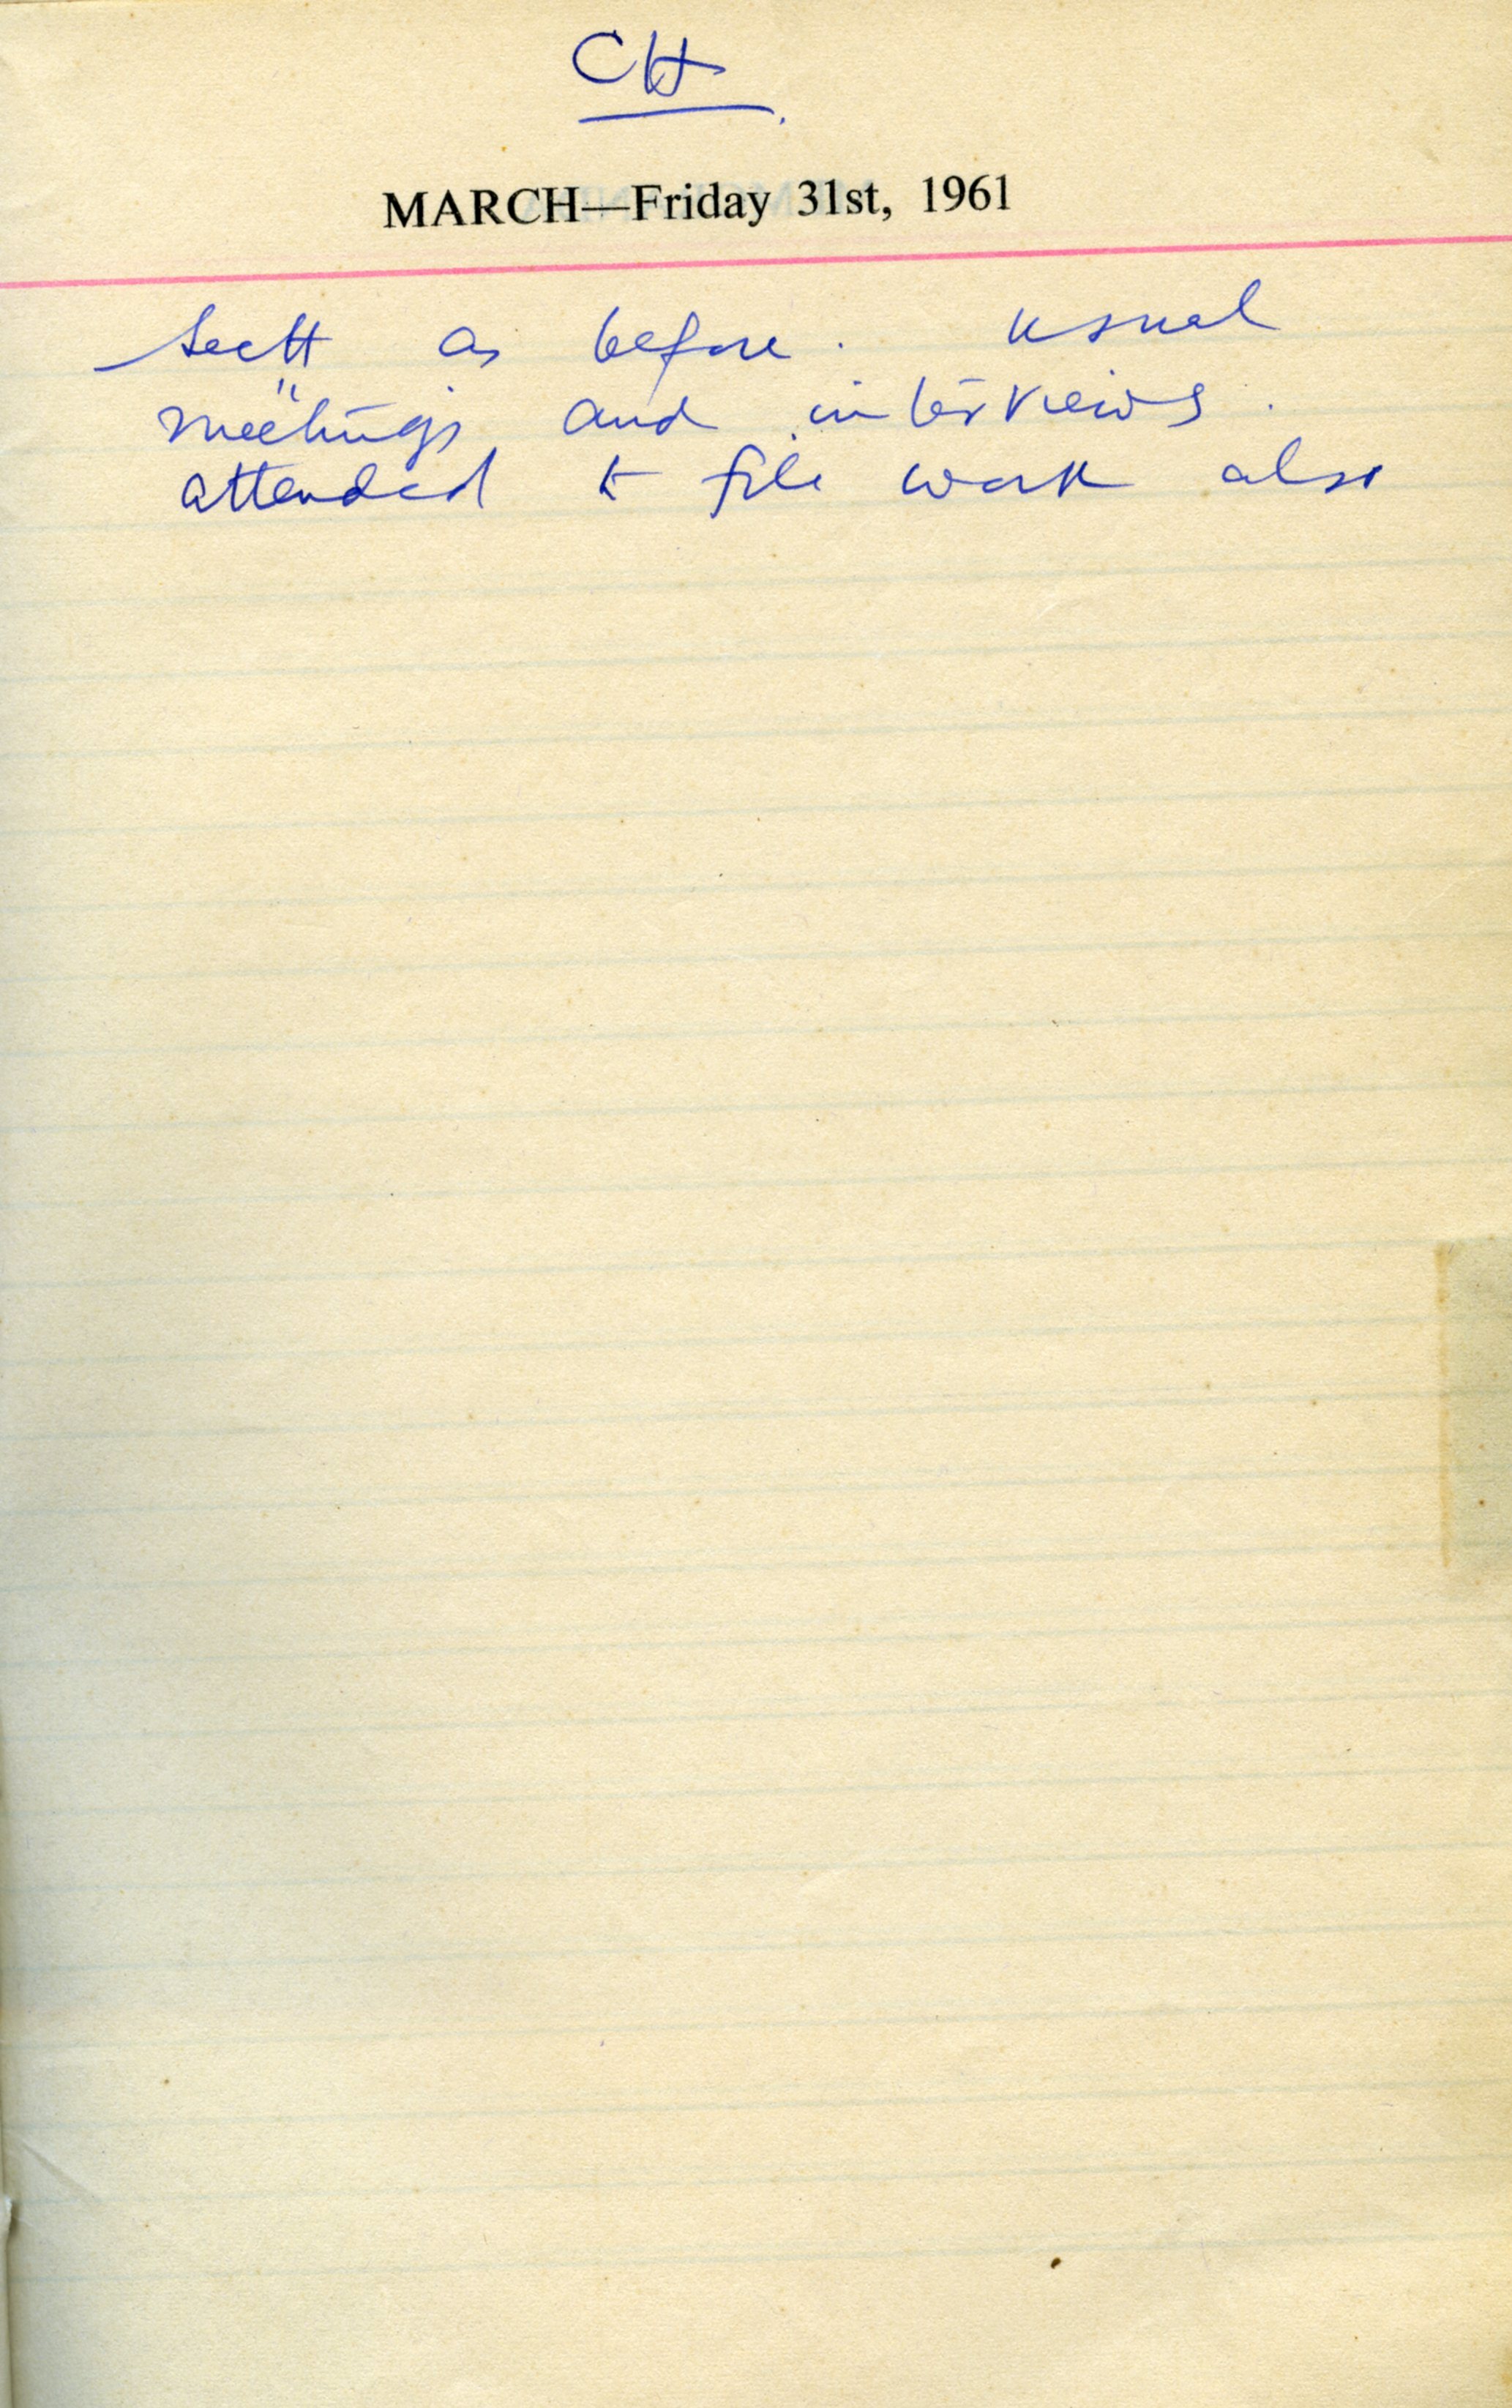 CH.
MARCH—Friday 31st, 1961
Sectt as before. usual
meetings and interviews.
attended to file work also